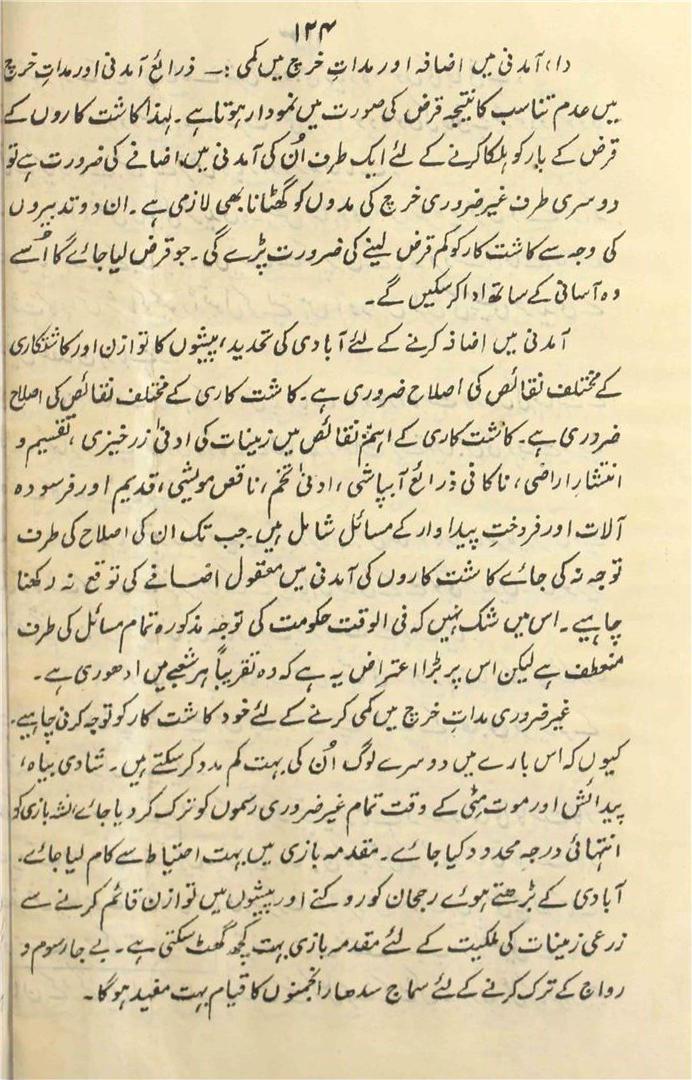 ۱۲۴
(۱) آمدنی میں اضافہ اور مداتِ خرچ میں کمی :۔ ذرائع آمدنی اور مداتِ خرچ
میں عدم تناسب کا نتیجہ قرض کی صورت میں نمودار ہوتا ہے۔ لہذا کاشت کاروں کے
قرض کے بار کو ہلکا کرنے کے لئے ایک طرف اُن کی آمدنی میں اضافے کی ضرورت ہے تو
دوسری طرف غیر ضروری خرچ کی مدوں کو گھٹانا بھی لازمی ہے۔ ان دو تدبیروں
کی وجہ سے کاشت کار کو کم قرض لینے کی ضرورت پڑے گی۔ جو قرض لیا جائے گا اُسے
وہ آسانی کے ساتھ ادا کر سکیں گے۔
آمدنی میں اضافہ کرنے کے لئے آبادی کی تحدید، پیشوں کا توازن اور کاشتکاری
کے مختلف نقائص کی اصلاح ضروری ہے۔ کاشت کاری کے مختلف نقائص کی اصلاح
ضروری ہے۔ کاشت کاری کے اہم نقائص میں زمینات کی ادنیٰ زرخیزی، تقسیم و
انتشارِ اراضی، ناکافی ذرائع آبپاشی، ادنیٰ تخم، ناقص مویشی، قدیم اور فرسودہ
آلات اور فروختِ پیداوار کے مسائل شامل ہیں۔ جب تک ان کی اصلاح کی طرف
توجہ نہ کی جائے کاشت کاروں کی آمدنی میں معقول اضافے کی توقع نہ رکھنا
چاہیے۔ اس میں شک نہیں کہ فی الوقت حکومت کی توجہ مذکورہ تمام مسائل کی طرف
منعطف ہے لیکن اس پر بڑا اعتراض یہ ہے کہ وہ تقریباً ہر شعبے میں ادھوری ہے۔
غیر ضروری مداتِ خرچ میں کمی کرنے کے لئے خود کاشت کار کو توجہ کرنی چاہیے۔
کیوں کہ اس بارے میں دوسرے لوگ اُن کی بہت کم مدد کر سکتے ہیں۔ شادی بیاہ،
پیدائش اور موت مٹی کے وقت تمام غیر ضروری رسموں کو ترک کر دیا جائے، نشہ بازی کو
انتہائی درجہ محدود کیا جائے۔ مقدمہ بازی میں بہت احتیاط سے کام لیا جائے۔
آبادی کے بڑھتے ہوئے رجحان کو روکنے اور پیشوں میں توازن قائم کرنے سے
زرعی زمینات کی ملکیت کے لئے مقدمہ بازی بہت کچھ گھٹ سکتی ہے۔ بے جا رسوم و
رواج کے ترک کرنے کے لئے سماج سدھار انجمنوں کا قیام بہت مفید ہوگا۔